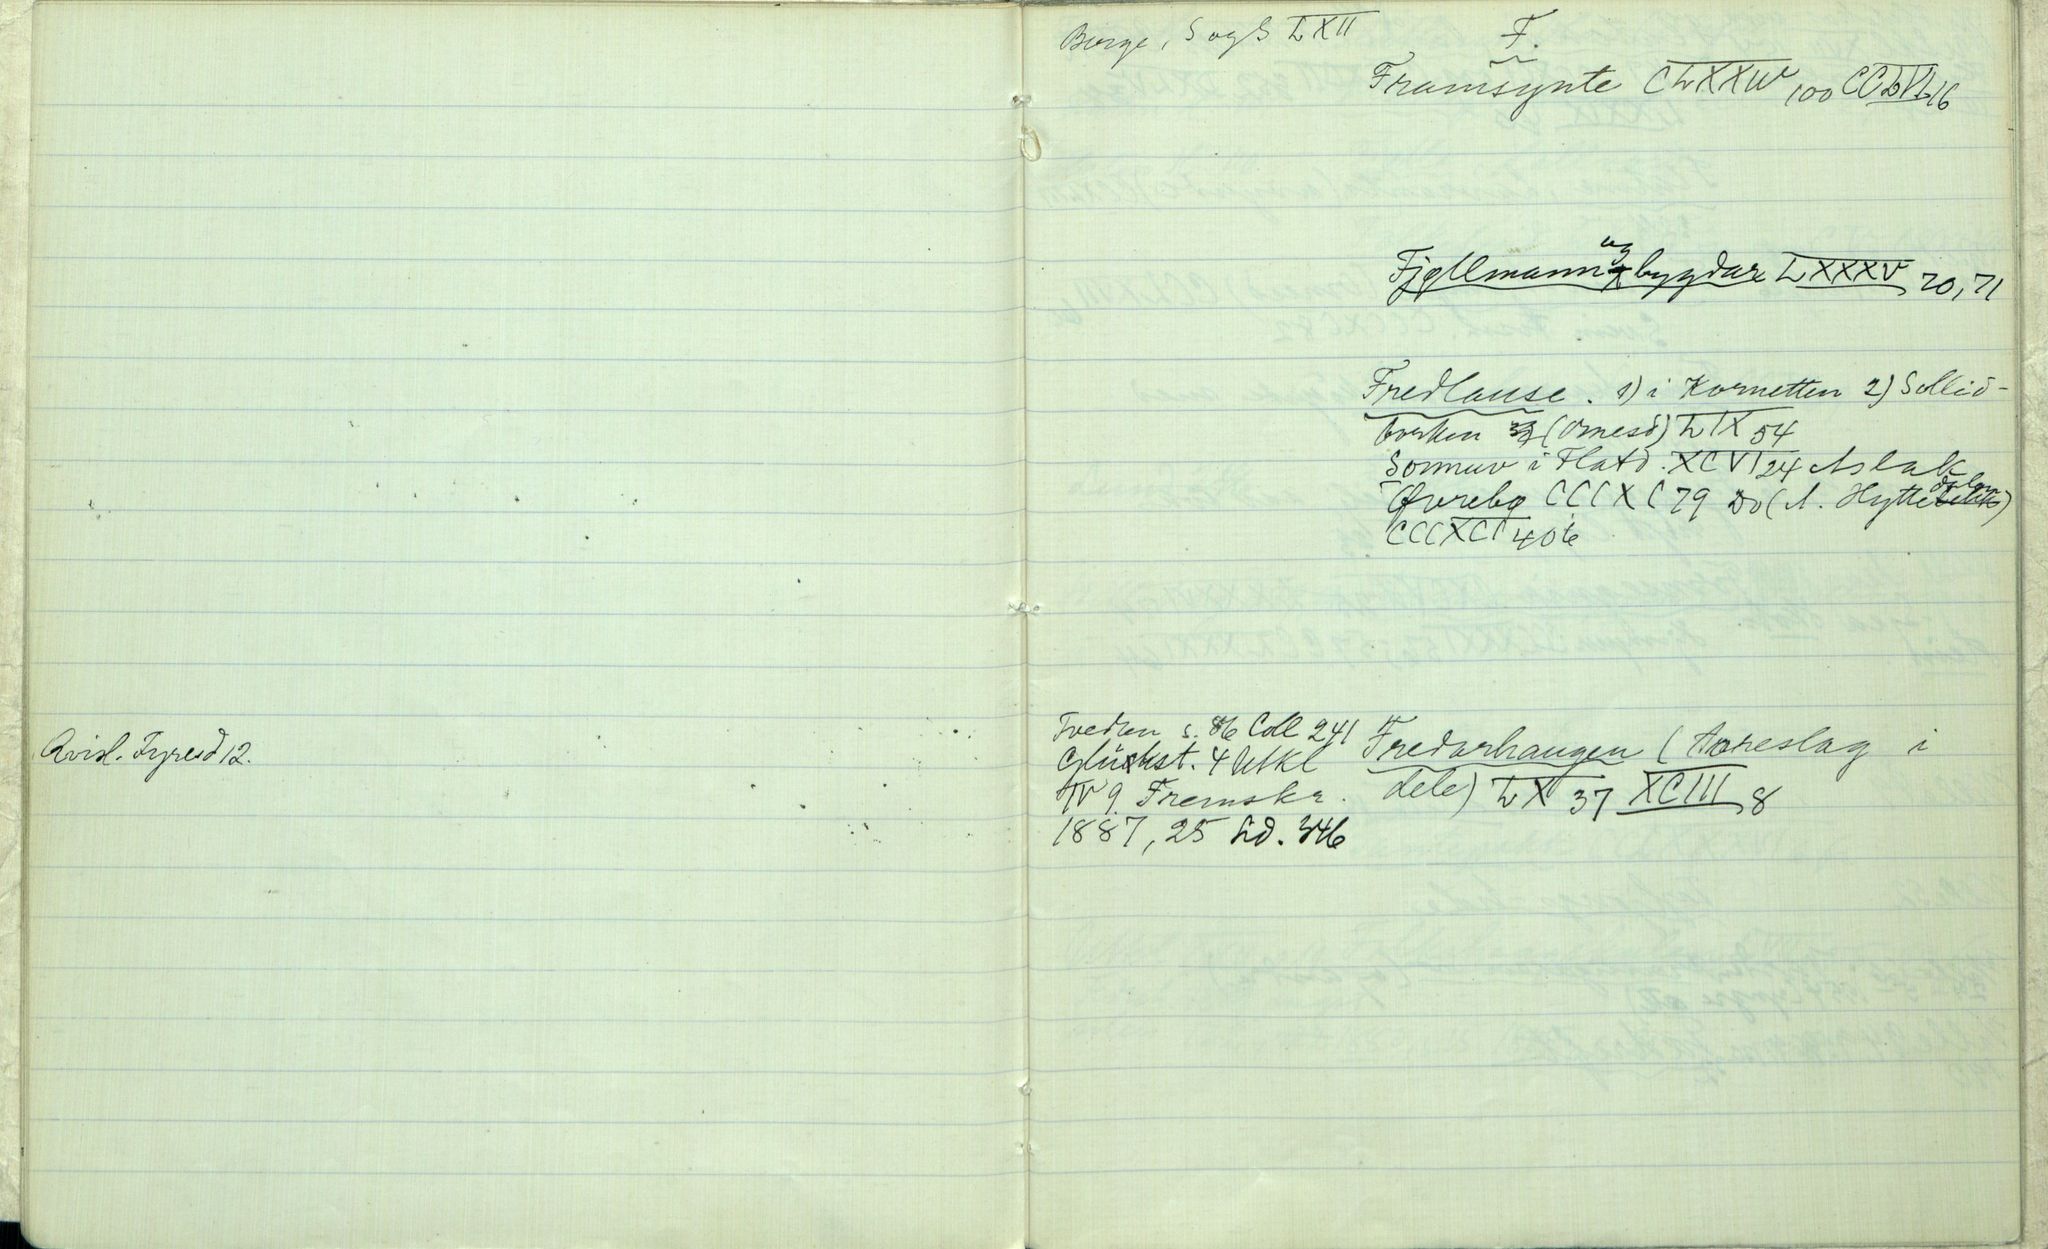 Kvisl. Fyresd 12.
Berge, S og S LXII
F.
Framsynte CLXXIV 100 CCLVI 16
Fjøllmann og bygdar LXXXV 70, 71
Fredlause. 1) i Kornetten 2) Sollid-
torken (Ømesd) LIX 54
Sommuv i Flatd. XCVI 24 Aslak
Øvrebø CCCXC 79 Do (A. Hyttedalen)
CCCXCI 406
Tvedten s. 86 Coll 241
Glückst. 4 Utkl
IV 9 Fremskr.
1887, 25 Ld. 346
Fredarhaugen (Aareslag i
dele) LX 37 XCIII 8